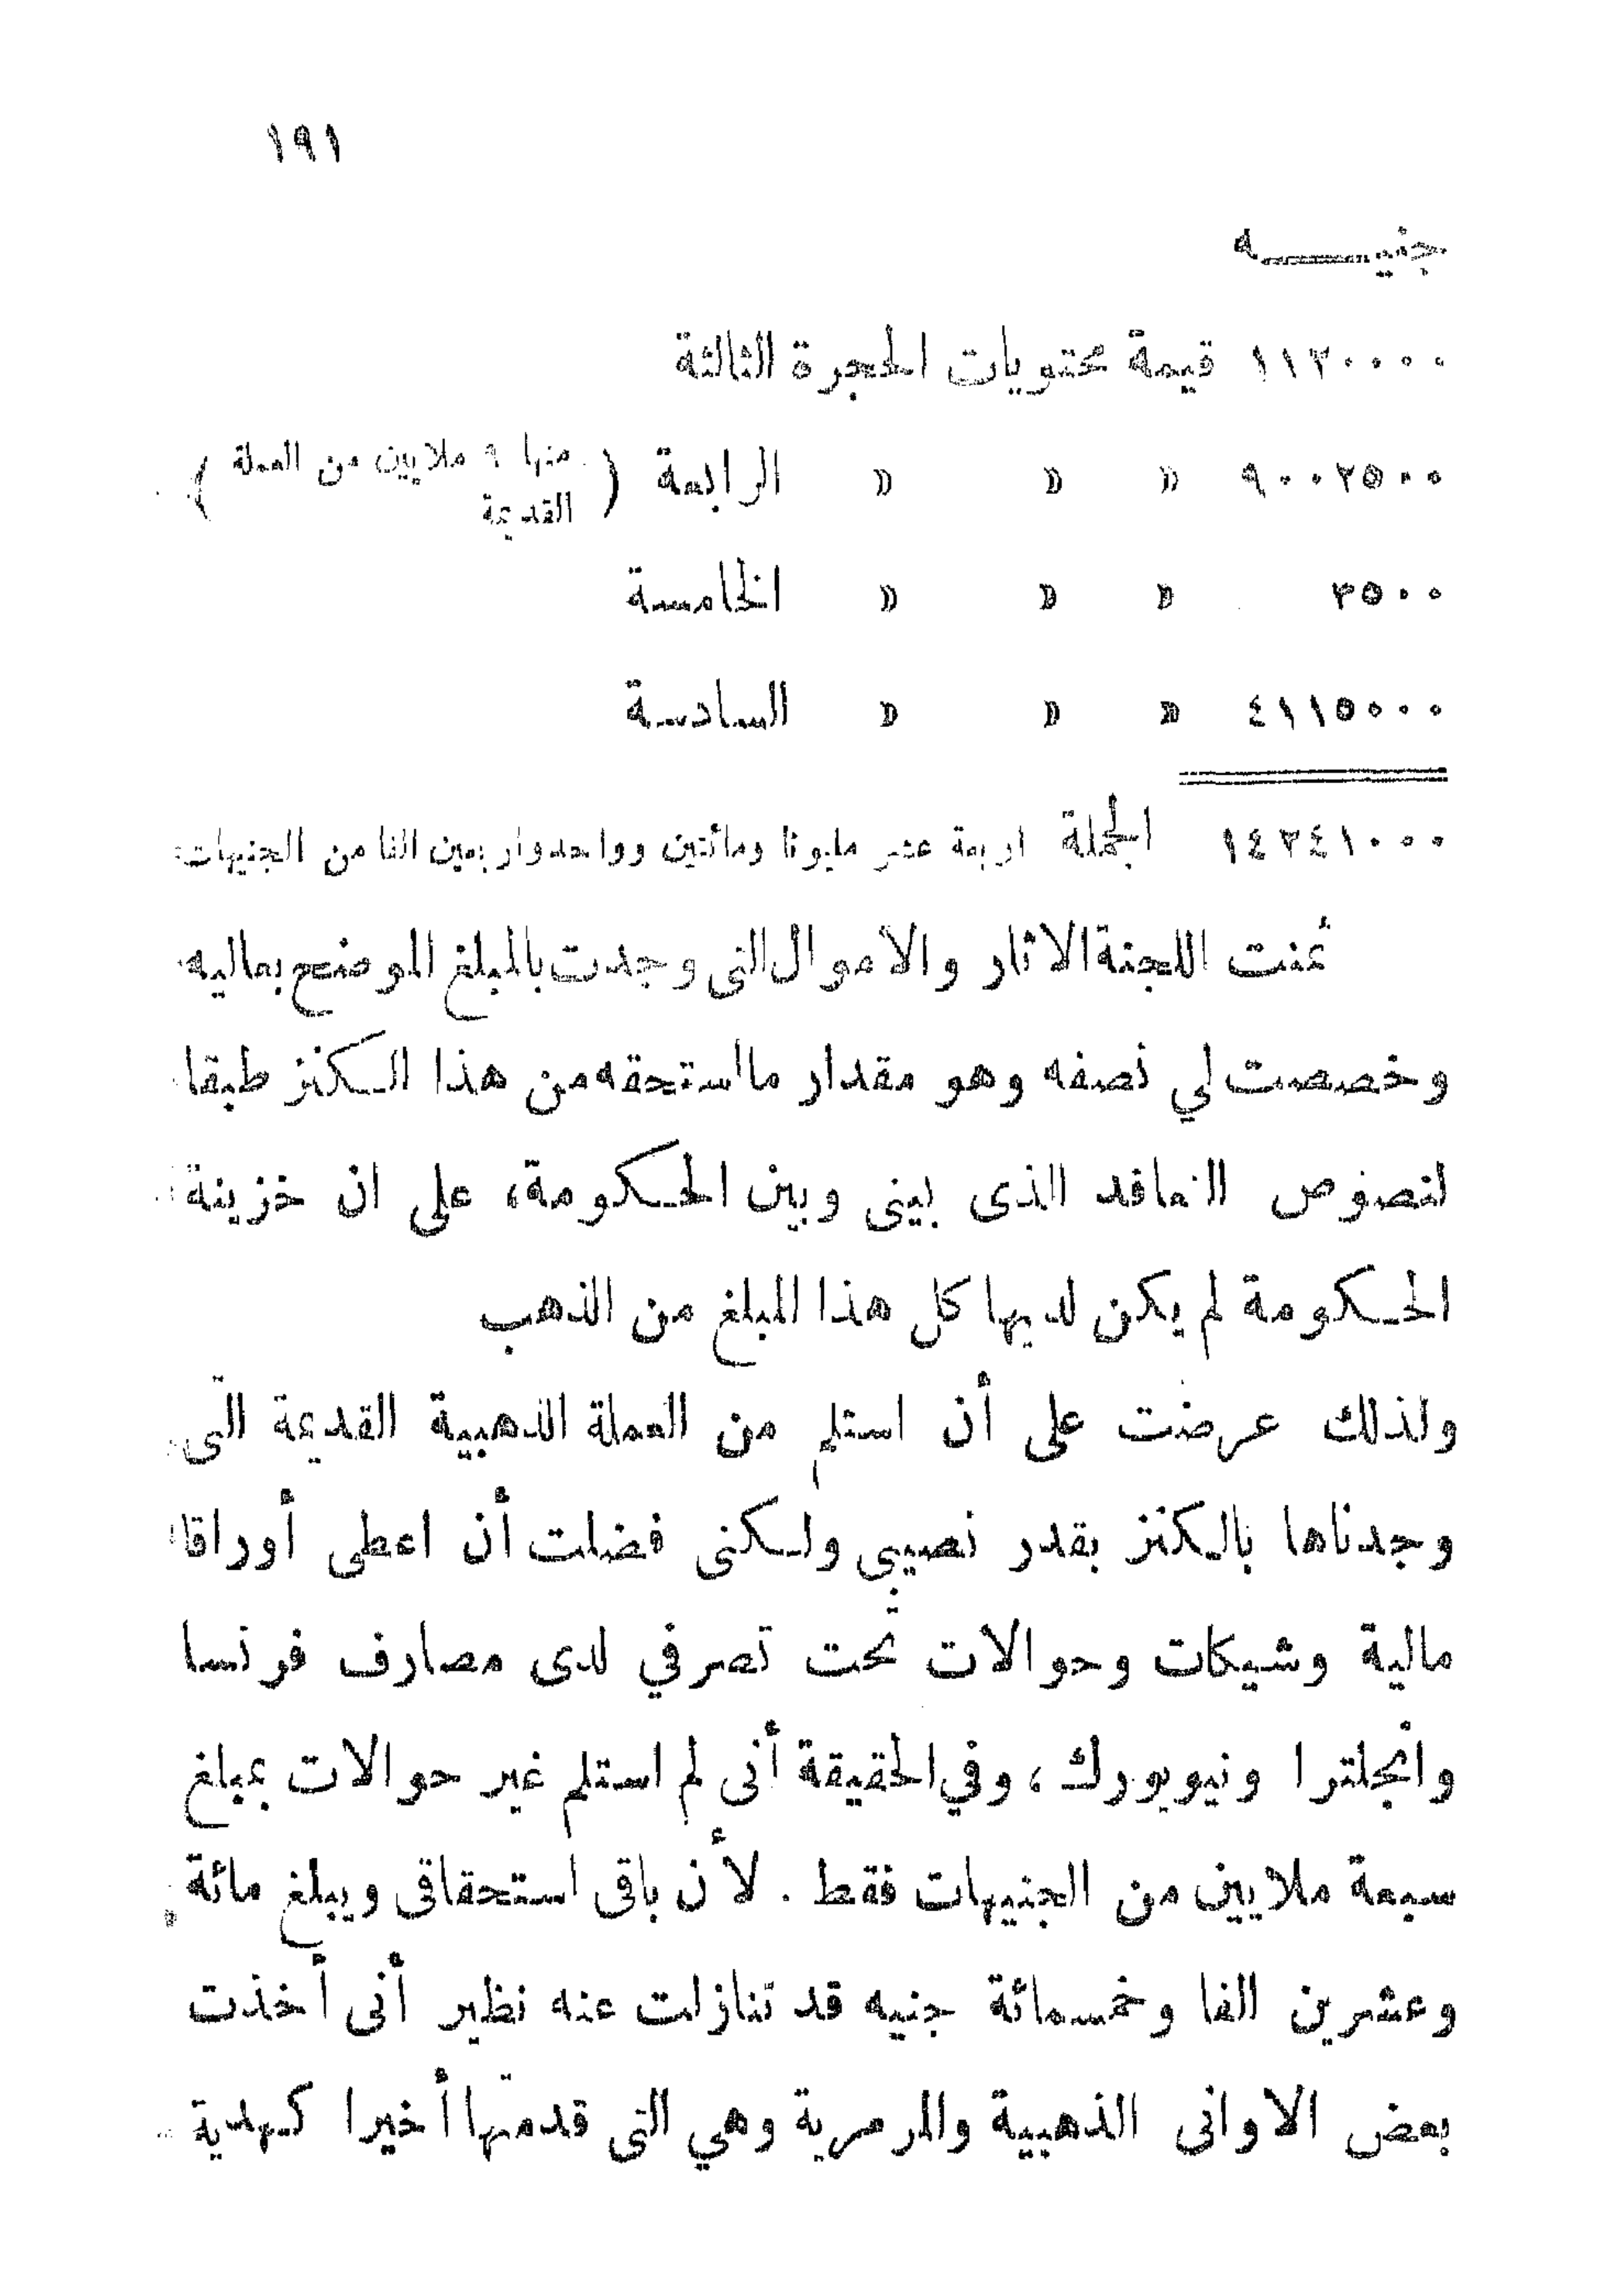 ١٩١
جنيه
١١٢٠٠٠٠ قيمة محتويات الحجرة الثالثة
٩٠٠٢٥٠٠ » » » الرابعة ( منها ٩ ملايين من العملة القديمة )
٣٥٠٠ » » » الخامسة
٤١١٥٠٠٠ » » » السادسة
١٤٢٤١٠٠٠ الجملة اربعة عشر مليونا ومائتين وواحد واربعين الفا من الجنيهات
ثمنت اللجنة الاثار والاموال التى وجدت بالمبلغ الموضح بعاليه
وخصصت لي نصفه وهو مقدار مااستحقه من هذا الكنز طبقا
لنصوص التعاقد الذى بينى وبين الحكومة، على ان خزينة
الحكومة لم يكن لديها كل هذا المبلغ من الذهب
ولذلك عرضت على أن استلم من العملة الذهبية القديمة التى
وجدناها بالكنز بقدر نصيبى ولكنى فضلت أن اعطى أوراقا
مالية وشيكات وحوالات تحت تصرفي لدى مصارف فرنسا
وانجلترا ونيويورك ، وفي الحقيقة أنى لم استلم غير حوالات بمبلغ
سبعة ملايين من الجنيهات فقط . لأن باقى استحقاقى ويبلغ مائة
وعشرين الفا وخمسمائة جنيه قد تنازلت عنه نظير أنى أخذت
بعض الاوانى الذهبية والمرمرية وهي التى قدمتها أخيرا كهدية